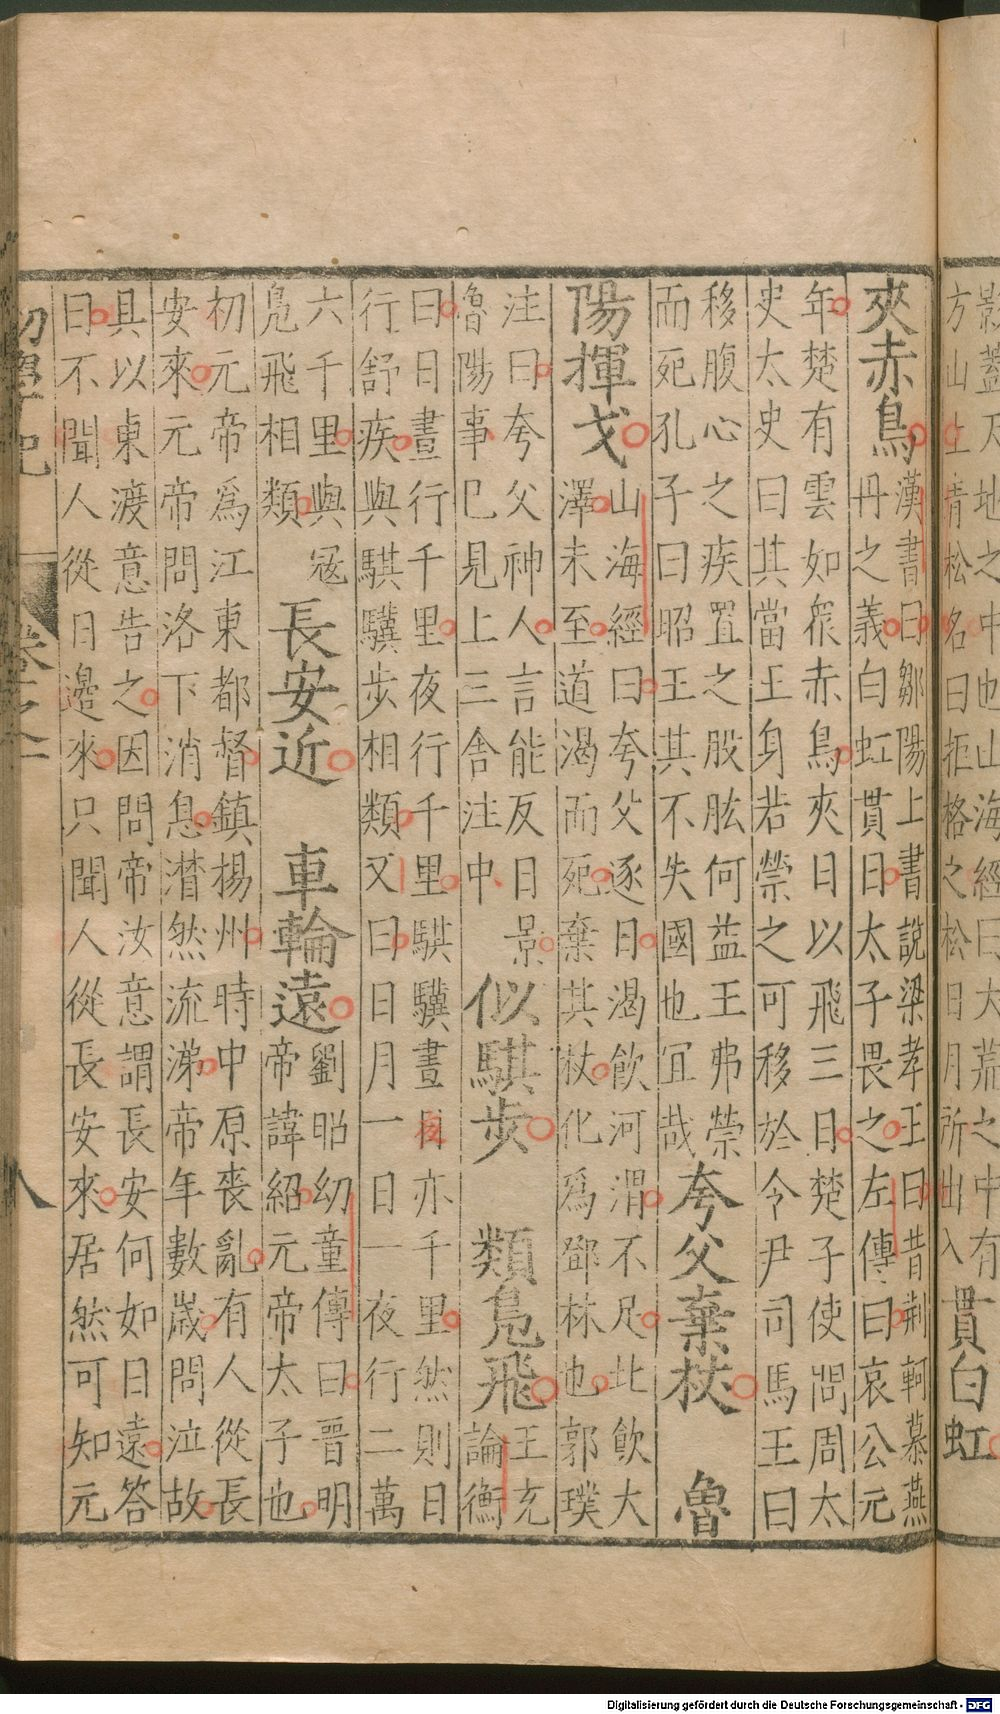 影蓋天地之中也山海經曰大荒之中有
方山上青松名曰拒格之松日月所出入
貫白虹
夾赤鳥
漢書曰鄒陽上書說梁孝王曰昔荊軻慕燕
丹之義白虹貫日太子畏之左傳曰哀公元
年楚有雲如眾赤鳥夾日以飛三日楚子使問周太
史太史曰其當王身若禜之可移於令尹司馬王曰
移腹心之疾置之股肱何益王弗禜
而死孔子曰昭王其不失國也冝哉
夸父棄杖 魯
陽揮戈
山海經曰夸父逐日渴飲河渭不足北飲大
澤未至道渴而死棄其杖化爲鄧林也郭璞
注曰夸父神人言能及日景
魯陽事已見上三舍注中
似騏步 類鳧飛
王充
論衡
曰日晝行千里夜行千里騏驥晝日亦千里然則日
行舒疾與騏驥步相類又曰日月一日一夜行二萬
六千里與冦
鳧飛相類
長安近 車輪遠
劉昭幼童傳曰晉明
帝諱紹元帝太子也
初元帝爲江東都督鎮楊州時中原喪亂有人從長
安來元帝問洛下消息潸然流涕帝年數歲問泣故
具以東渡意告之因問帝汝意謂長安何如日遠答
曰不聞人從日邊來只聞人從長安來居然可知元
初學記 卷之一 八
Digitalisierung gefördert durch die Deutsche Forschungsgemeinschaft - DFG